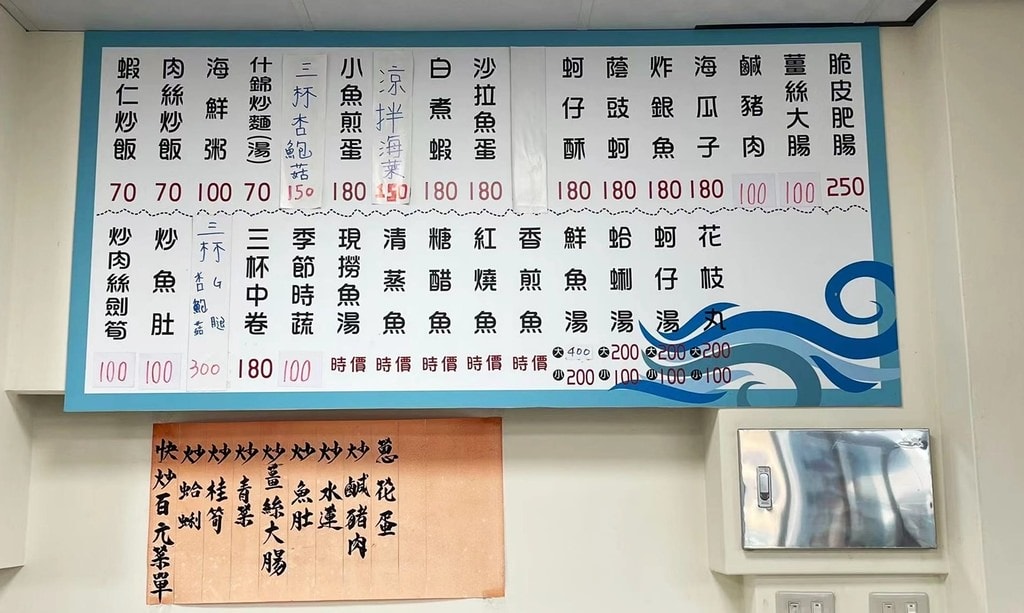 脆皮肥腸 250
薑絲大腸 100
鹹豬肉 100
海瓜子 180
炸銀魚 180
蔭豉蚵 180
蚵仔酥 180
沙拉魚蛋 180
白煮蝦 180
涼拌海菜 150
小魚煎蛋 180
三杯杏鮑菇 150
什錦炒麵(湯) 70
海鮮粥 100
肉絲炒飯 70
蝦仁炒飯 70
花枝丸 大200 小100
蚵仔湯 大200 小100
蛤蜊湯 大200 小100
鮮魚湯 大400 小200
香煎魚 時價
紅燒魚 時價
糖醋魚 時價
清蒸魚 時價
現撈魚湯 時價
季節時蔬 100
三杯中卷 180
三杯G腿杏鮑菇 300
炒魚肚 100
炒肉絲劍筍 100
快炒百元菜單
炒蛤蜊
炒桂筍
炒青菜
炒薑絲大腸
炒魚肚
炒水蓮
炒鹹豬肉
蔥花蛋